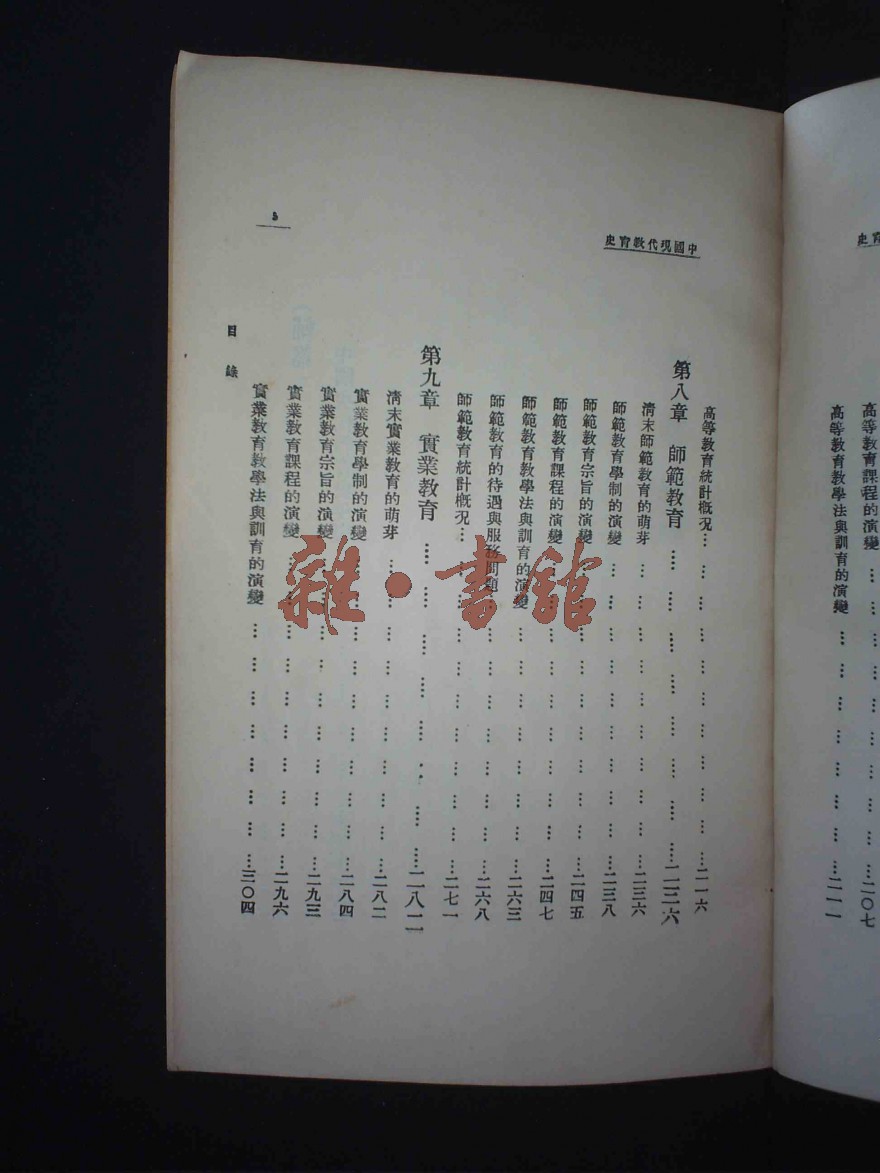 育史
高等教育課程的演變 … … … … … … …二〇七
高等教育教學法與訓育的演變 … … … … … … …二一一
中國現代教育史
高等教育統計概況… … … … … … … … … … …二一六
第八章 師範教育 … … … … … … … … …二三六
清末師範教育的萌芽 … … … … … … … … …二三六
師範教育學制的演變 … … … … … … … … …二三八
師範教育宗旨的演變… … … … … … … … …二四五
師範教育課程的演變… … … … … … … … …二四七
師範教育教學法與訓育的演變 … … … … … … …二六三
師範教育的待遇與服務問題… … … … … … … …二六八
師範教育統計概況… … … … … … … … … … …二七一
第九章 實業教育 … … … … … … … …二八二
清末實業教育的萌芽 … … … … … … … … …二八二
實業教育學制的演變 … … … … … … … … …二八四
實業教育宗旨的演變 … … … … … … … … …二九三
實業教育課程的演變 … … … … … … … … …二九六
實業教育教學法與訓育的演變 … … … … … … …三〇四
目錄
5
雜·書舘